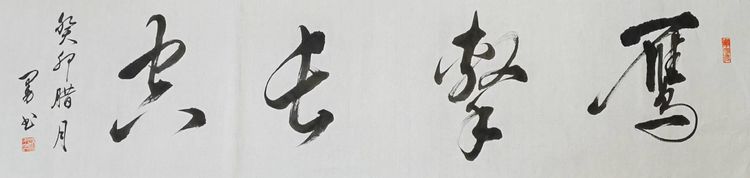 鹰击长空
癸卯腊月
书